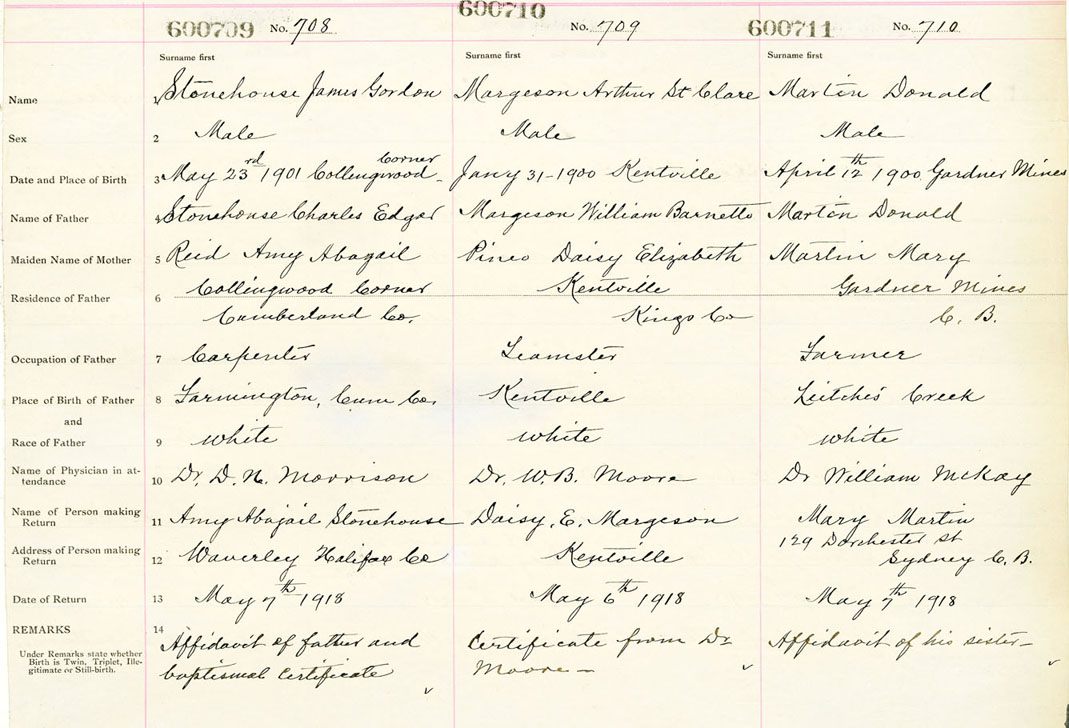 600709 No. 708 600710 No. 709 600711 No. 710
Surname first Surname first Surname first
Name 1 Stonehouse James Gordon Margeson Arthur St Clare Martin Donald
Sex 2 Male Male Male
Corner
Date and Place of Birth 3 May 23rd 1901 Collingwood Jany 31-1900 Kentville April 12th 1900 Gardner Mines
Name of Father 4 Stonehouse Charles Edgar Margeson William Barnette Martin Donald
Maiden Name of Mother 5 Reid Amy Abagail Pineo Daisy Elizabeth Martin Mary
Residence of Father 6 Collingwood Corner Kentville Gardner Mines
Cumberland Co. Kings Co C. B.
Occupation of Father 7 Carpenter Teamster Farmer
Place of Birth of Father 8 Farmington, Cum Co. Kentville Leitche's Creek
and
Race of Father 9 White White White
Name of Physician in at-
tendance 10 Dr. D. N. Morrison Dr. W. B. Moore Dr William McKay
Name of Person making
Return 11 Amy Abajail Stonehouse Daisy. E. Margeson Mary Martin
129 Dorchester St
Address of Person making
Return 12 Waverley Halifax Co Kentville Sydney C. B.
Date of Return 13 May 7th 1918 May 6th 1918 May 7th 1918
REMARKS 14 Affidavit of father and Certificate from Dr Affidavit of his sister
Under Remarks state whether
Birth is Twin, Triplet, Ille-
gitimate or Still-birth.
baptismal Certificate Moore